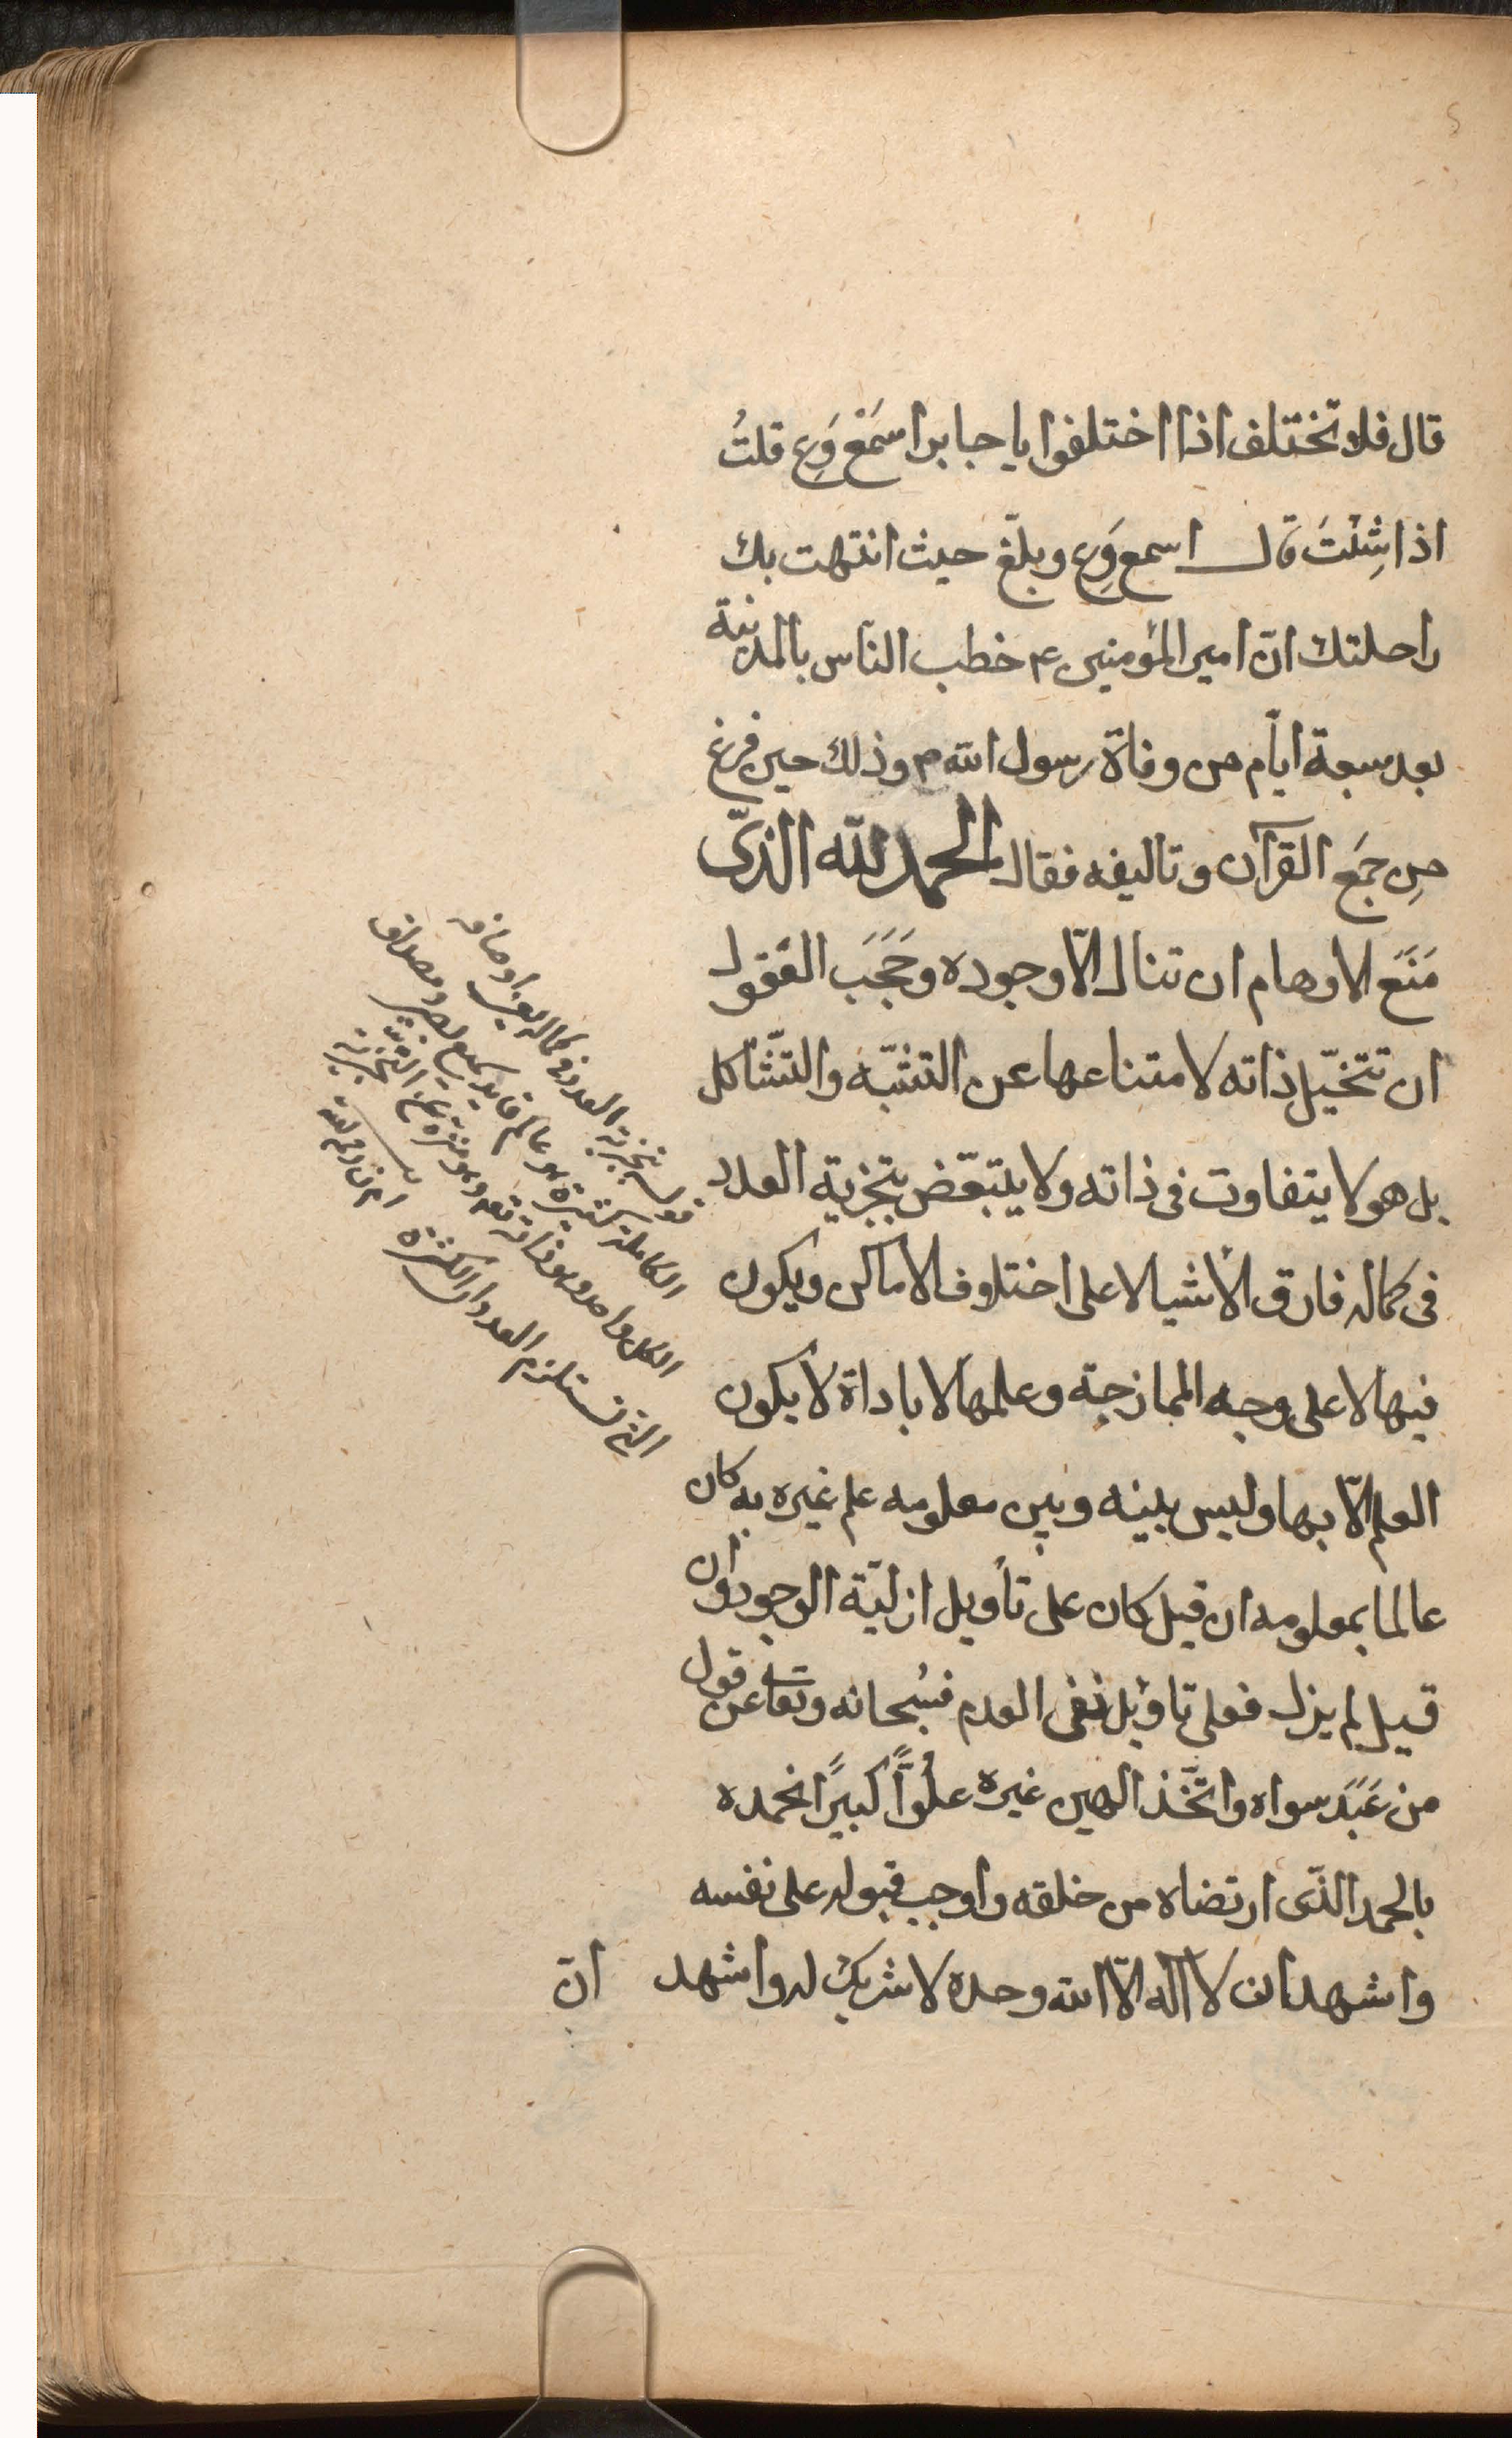 قال فلا تختلف اذا اختلفوا يا جابر اسمَع وَعِ قلتُ
اذا شِئتَ قال اسمع وَعِ وبلّغ حيث انتهت بك
راحلتك انّ امير المؤمنين ع خطب الناس بالمدينة
بعد سبعة ايّام من وفاة رسول الله ص وذلك حين فرغ
مِن جمَع القرآن وتاليفه فقال الحمد لله الذّى
مَنَعَ الاوهام ان تنال الّا وجوده وحَجَبَ العقول
ان تتخيّل ذاته لامتناعها عن التشبّه والتّشاكل
بل هو لا يتفاوت فى ذاته ولا يتبعّض بتجزية العدد
فى كماله فارق الأشيا لا على اختلاف الاماكن ويكون
فيها لا على وجه الممازجة وعلمها لا باداة لا يكون
العلم الّا بها وليس بينه وبين معلومه علم غيره به كان
عالما بمعلومه ان قيل كان على تأويل ازليّة الوجود وان
قيل لم يزل فعلى تاويل نفى العدم فسُبحانه وتعالى عن قول
من عَبَدَ سواه واتّخَذ الهين غيره علُوًّا كبيرًا نحمده
بالحمد الذّى ارتضاه من خلقه واوجب قبوله على نفسه
واشهد ان لا اله الّا الله وحده لا شريك له واشهد انّ
بتجزية العدد فى كماله اوصافه
الكاملة كثيرة هو عالم
الكل واحد وهو ذاته تعالى وهو منزه عن
التى تستلزم العدد والكثرة